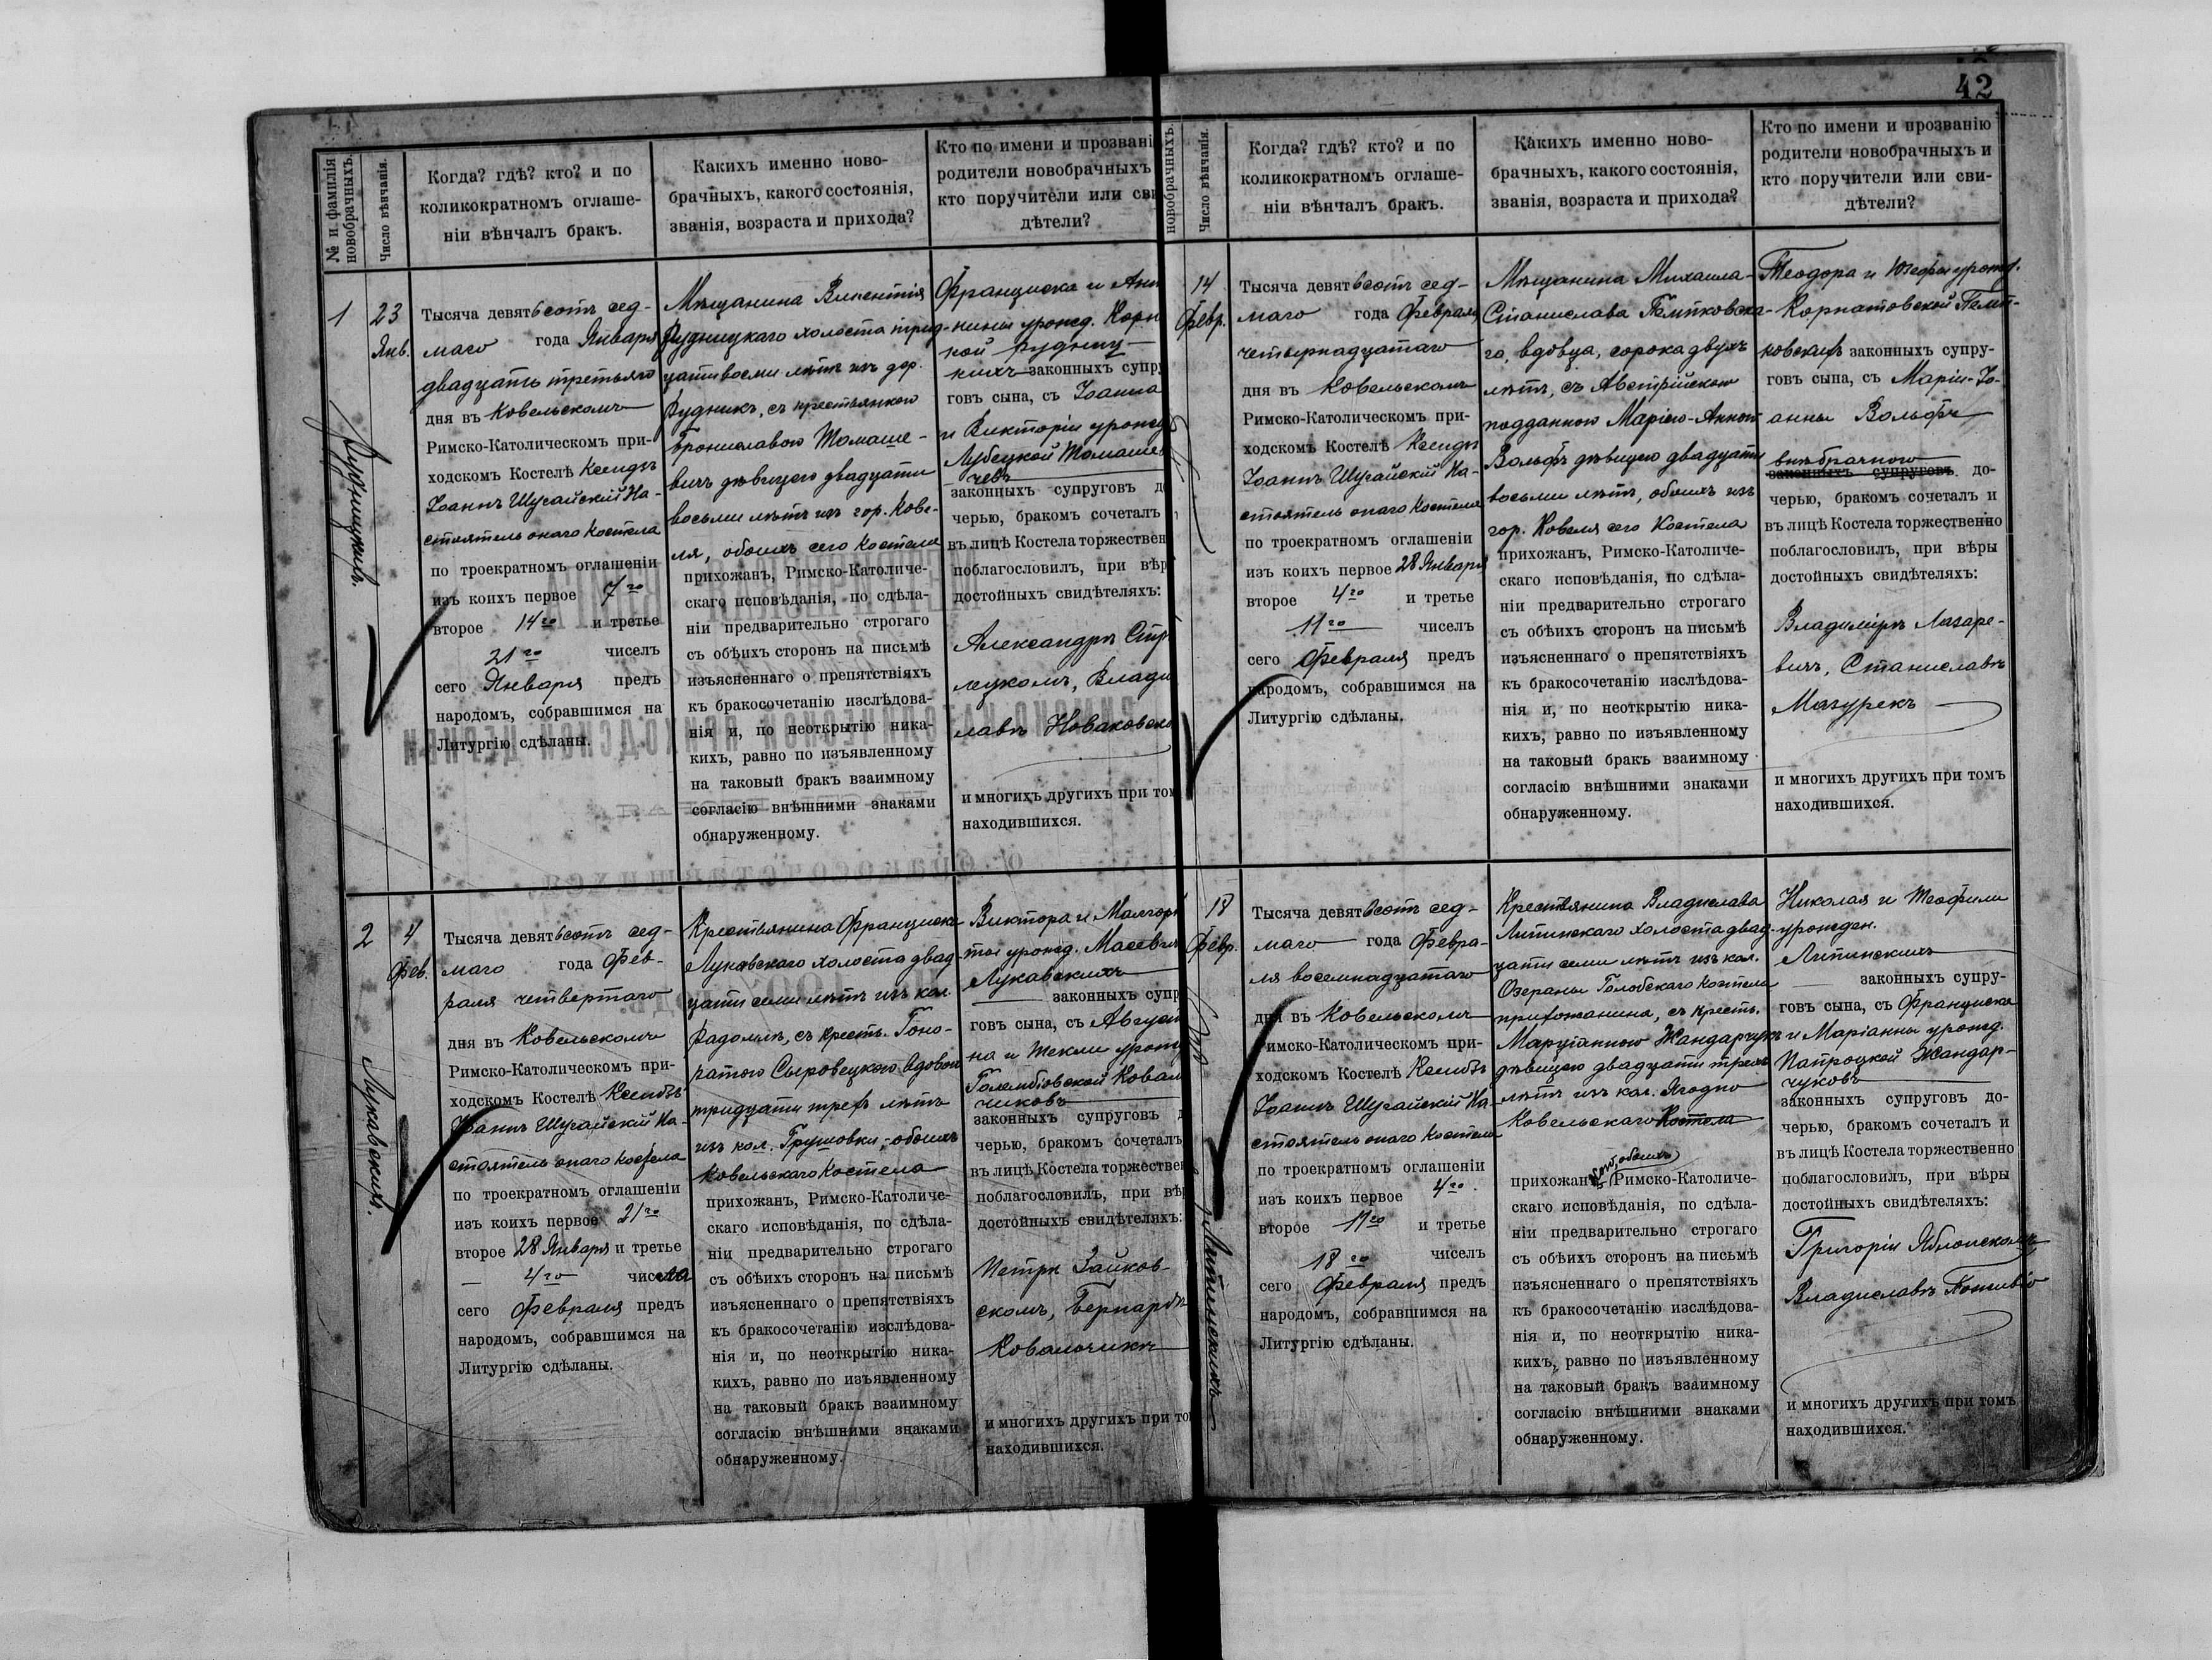 42
№ и фамилія
новобрачныхъ.
Число вѣнчанія.
Когда? гдѣ? кто? и по
коликократномъ оглаше-
ніи вѣнчалъ бракъ.
Какихъ именно ново-
брачныхъ, какого состоянія,
званія, возраста и прихода?
Кто по имени и прозвані
родители новобрачныхъ
кто поручители или сви
дѣтели?
1
Рудницкихъ.
23
Янв.
Тысяча девятьсотъ сед-
маго года Января
двадцать третьяго
дня въ Ковельскомъ
Римско-Католическомъ при-
ходскомъ Костелѣ Ксендзъ
Іоаннъ Шугайскій На-
стоятель онаго Костела
по троекратномъ оглашеніи
изъ коихъ первое 7го
второе 14го и третье
21го чиселъ
сего Января предъ
народомъ, собравшимся на
Литургію сдѣланы.
Мѣщанина Викентія
Рудницкаго холоста трид-
цативосми лѣтъ изъ дер.
Рудникъ, съ крестьянкою
Брониславою Томаше-
вичъ дѣвицею двадцати
восьми лѣтъ изъ гор. Кове-
ля, обоихъ сего Костела
прихожанъ, Римско-Католиче-
скаго исповѣданія, по сдѣла-
ніи предварительно строгаго
съ обѣихъ сторонъ на письмѣ
изъясненнаго о препятствіяхъ
къ бракосочетанію изслѣдова-
нія и, по неоткрытію ника-
кихъ, равно по изъявленному
на таковый бракъ взаимному
согласію внѣшними знаками
обнаруженному.
Франциска и Ан
нины урожд. Корн
кой Рудниц-
кихъ законныхъ супру
говъ сына, съ Іоанна
и Викторіи урожд
Лубецкой Томашев
чевъ
законныхъ супруговъ д
черью, бракомъ сочеталъ
въ лицѣ Костела торжествен
поблагословилъ, при вѣр
достойныхъ свидѣтеляхъ:
Александръ Стр
лецкомъ, Влади
лавъ Новаковско
и многихъ другихъ при том
находившихся.
2
Лукавскихъ.
4
Фев.
Тысяча девятьсотъ сед-
маго года Фев-
раля четвертаго
дня въ Ковельскомъ
Римско-Католическомъ при-
ходскомъ Костелѣ Ксендзъ
Іоаннъ Шугайскій На-
стоятель онаго Костела
по троекратномъ оглашеніи
изъ коихъ первое 21го
второе 28 Января и третье
4го числа
сего Февраля предъ
народомъ, собравшимся на
Литургію сдѣланы.
Крестьянина Франциска
Лукавскаго холоста двад-
цати семи лѣтъ изъ кол.
Радомль, съ кресть. Гоно-
ратою Сыровецкою вдовою
тридцати трехъ лѣтъ
изъ кол. Грушовки, обоихъ
Ковельскаго Костела
прихожанъ, Римско-Католиче-
скаго исповѣданія, по сдѣла-
ніи предварительно строгаго
съ обѣихъ сторонъ на письмѣ
изъясненнаго о препятствіяхъ
къ бракосочетанію изслѣдова-
нія и, по неоткрытію ника-
кихъ, равно по изъявленному
на таковый бракъ взаимному
согласію внѣшними знаками
обнаруженному.
Виктора и Малгор
ты урожд. Масевич
Лукавскихъ
законныхъ супр
говъ сына, съ Августи
на и Теклы урожд
Голембіовской Ковал
чиковъ
законныхъ супруговъ д
черью, бракомъ сочеталъ
въ лицѣ Костела торжествен
поблагословилъ, при вѣр
достойныхъ свидѣтеляхъ:
Петръ Зайков-
скомъ, Бернардъ
Ковальчикъ
и многихъ другихъ при то
находившихся.
новобрачныхъ.
Число вѣнчанія.
Когда? гдѣ? кто? и по
коликократномъ оглаше-
ніи вѣнчалъ бракъ.
Какихъ именно ново-
брачныхъ, какого состоянія,
званія, возраста и прихода?
Кто по имени и прозванію
родители новобрачныхъ и
кто поручители или сви-
дѣтели?
14
Февр.
Тысяча девятьсотъ сед-
маго года Февраля
четырнадцатаго
дня въ Ковельскомъ
Римско-Католическомъ при-
ходскомъ Костелѣ Ксендзъ
Іоаннъ Шугайскій На-
стоятель онаго Костела
по троекратномъ оглашеніи
изъ коихъ первое 28 Января
второе 4го и третье
11го чиселъ
сего Февраля предъ
народомъ, собравшимся на
Литургію сдѣланы.
Мѣщанина Михаила-
Станислава Пентковска-
го, вдовца, сорока двухъ
лѣтъ, съ Австрійскою
подданною Маріею-Анною
Вольфъ дѣвицею двадцати
восьми лѣтъ, обоихъ изъ
гор. Ковеля сего Костела
прихожанъ, Римско-Католиче-
скаго исповѣданія, по сдѣла-
ніи предварительно строгаго
съ обѣихъ сторонъ на письмѣ
изъясненнаго о препятствіяхъ
къ бракосочетанію изслѣдова-
нія и, по неоткрытію ника-
кихъ, равно по изъявленному
на таковый бракъ взаимному
согласію внѣшними знаками
обнаруженному.
Теодора и Юзефы урожд.
Корпатовской Пент-
ковскихъ законныхъ супру-
говъ сына, съ Маріи-Іо-
анны Вольфъ
внѣбрачною
законныхъ супруговъ до-
черью, бракомъ сочеталъ и
въ лицѣ Костела торжественно
поблагословилъ, при вѣры
достойныхъ свидѣтеляхъ:
Владиміръ Лазаре-
вичъ, Станиславъ
Мазурекъ
и многихъ другихъ при томъ
находившихся.
Липинскихъ
18
Февр.
Тысяча девятьсотъ сед-
маго года Февра-
ля восемнадцатаго
дня въ Ковельскомъ
Римско-Католическомъ при-
ходскомъ Костелѣ Ксендзъ
Іоаннъ Шугайскій На-
стоятель онаго Костела
по троекратномъ оглашеніи
изъ коихъ первое 4го
второе 11го и третье
18го чиселъ
сего Февраля предъ
народомъ, собравшимся на
Литургію сдѣланы.
Крестьянина Владислава
Липинскаго холоста двад-
цати семи лѣтъ изъ кол.
Озераны Голобскаго Костела
прихожанина, съ кресть.
Марцianною Жандарчукъ
дѣвицею двадцати трехъ
лѣтъ изъ кол. Ягодно
Ковельскаго Костела
обоихъ
прихожан Римско-Католиче-
скаго исповѣданія, по сдѣла-
ніи предварительно строгаго
съ обѣихъ сторонъ на письмѣ
изъясненнаго о препятствіяхъ
къ бракосочетанію изслѣдова-
нія и, по неоткрытію ника-
кихъ, равно по изъявленному
на таковый бракъ взаимному
согласію внѣшними знаками
обнаруженному.
Николая и Теофили
урожден.
Липинскихъ
законныхъ супру-
говъ сына, съ Франциска
и Маріанны урожд.
Патроцкой Жандар-
чуковъ
законныхъ супруговъ до-
черью, бракомъ сочеталъ и
въ лицѣ Костела торжественно
поблагословилъ, при вѣры
достойныхъ свидѣтеляхъ:
Григорія Яблонскомъ,
Владиславъ
и многихъ другихъ при томъ
находившихся.